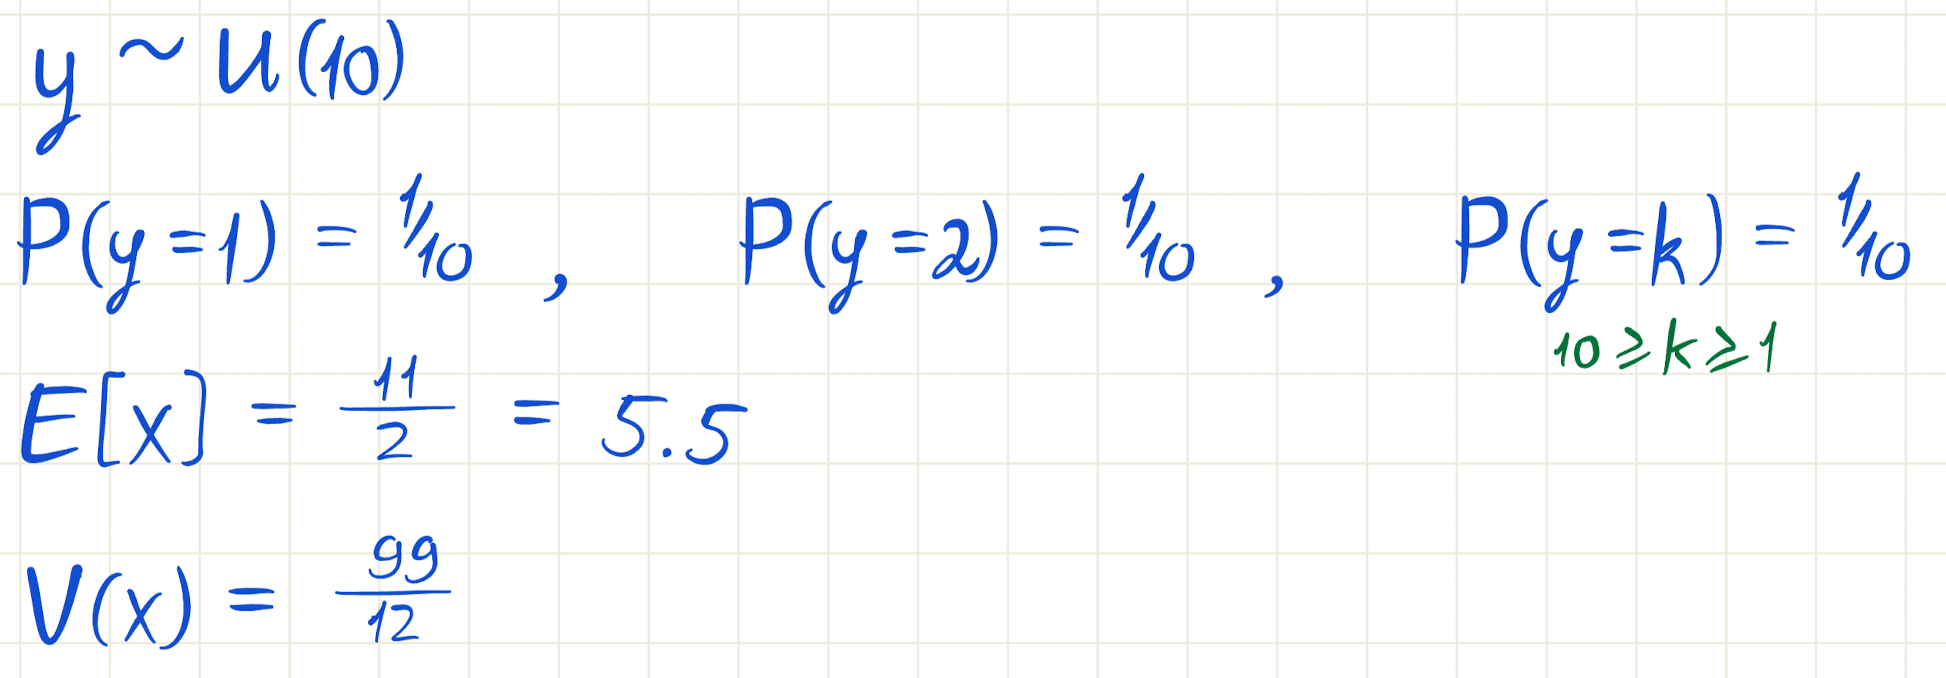 y ~ U(10)
P(y=1) = 1/10 , P(y=2) = 1/10 , P(y=k) = 1/10
10 ≥ k ≥ 1
E[x] = 11/2 = 5.5
V(x) = 99/12